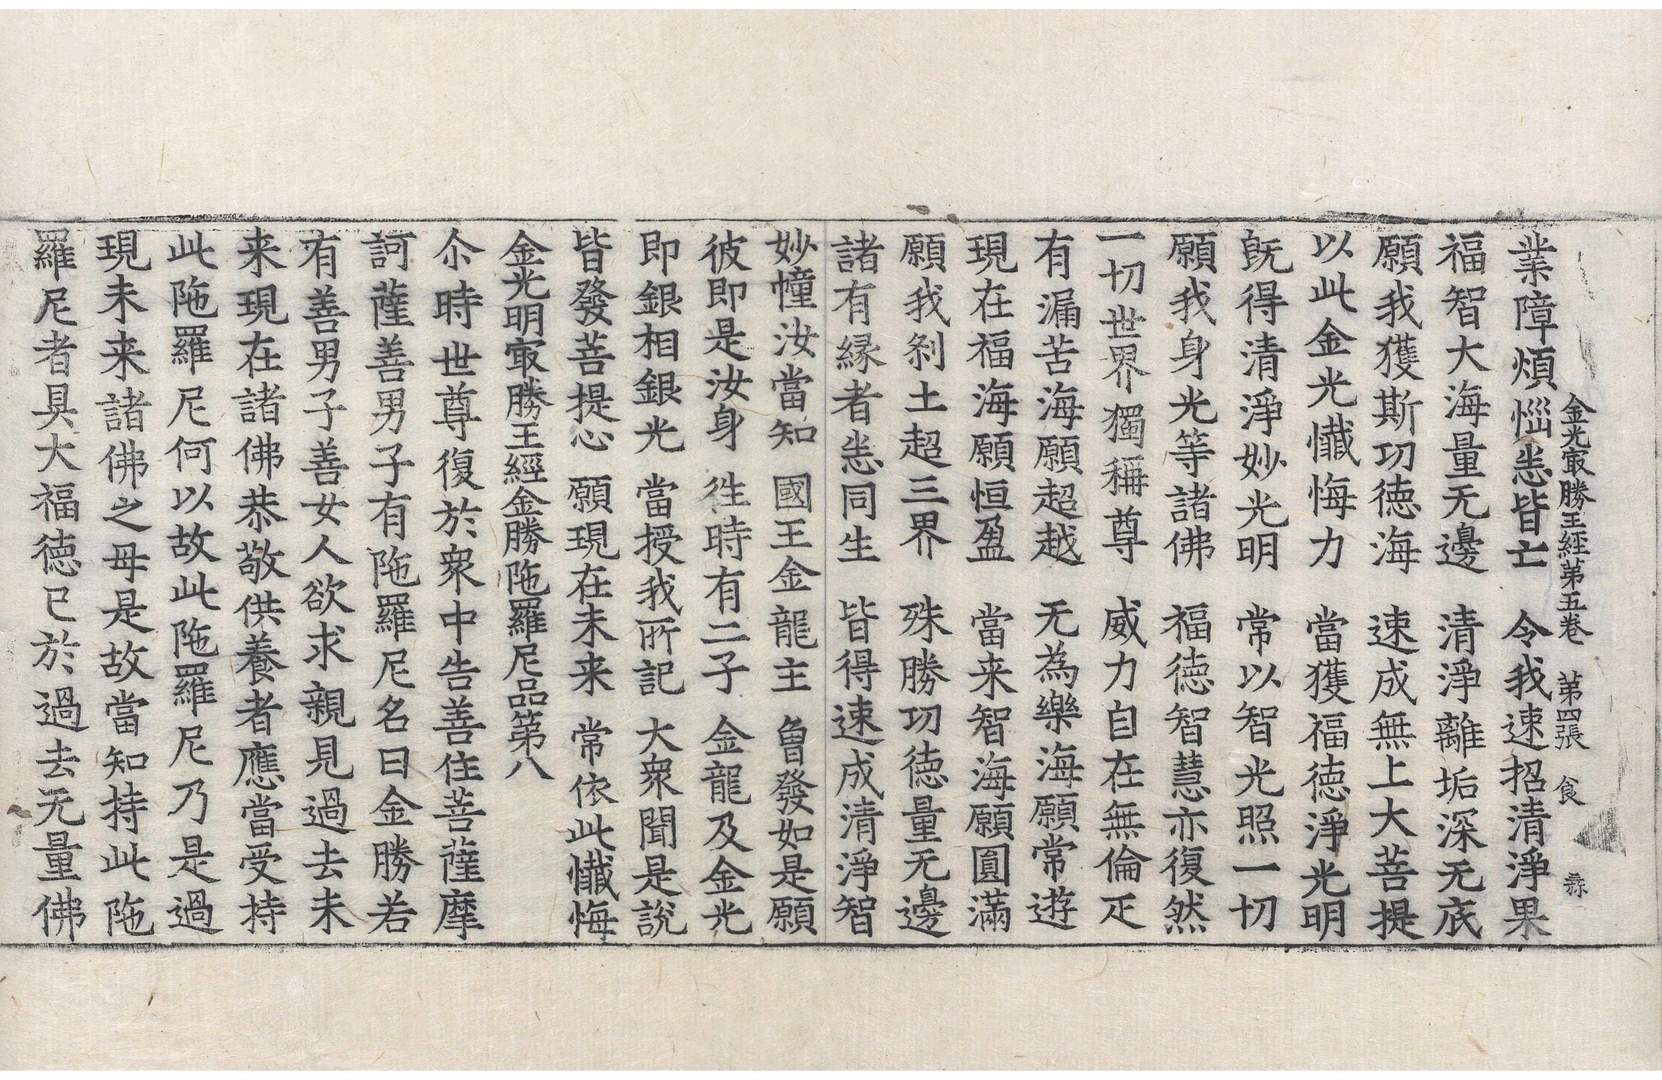 金光㝡勝王經第五卷　第四張　食
業障煩惱悉皆亡　令我速招清淨果
福智大海量无邊　清淨離垢深无底
願我獲斯功德海　速成無上大菩提
以此金光懺悔力　當獲福德淨光明
旣得清淨妙光明　常以智光照一切
願我身光等諸佛　福德智慧亦復然
一切世界獨稱尊　威力自在無倫疋
有漏苦海願超越　无為樂海願常遊
現在福海願恒盈　當来智海願圓滿
願我刹土超三界　殊勝功德量无邊
諸有縁者悉同生　皆得速成清淨智
妙幢汝當知　國王金龍主　曾發如是願
彼即是汝身　往時有二子　金龍及金光
即銀相銀光　當授我所記　大衆聞是說
皆發菩提心　願現在未来　常依此懺悔
金光明㝡勝王經金勝陁羅尼品第八
尒時世尊復於衆中告善住菩薩摩
訶薩善男子有陁羅尼名曰金勝若
有善男子善女人欲求親見過去未
来現在諸佛恭敬供養者應當受持
此陁羅尼何以故此陁羅尼乃是過
現未来諸佛之母是故當知持此陁
羅尼者具大福德已於過去无量佛